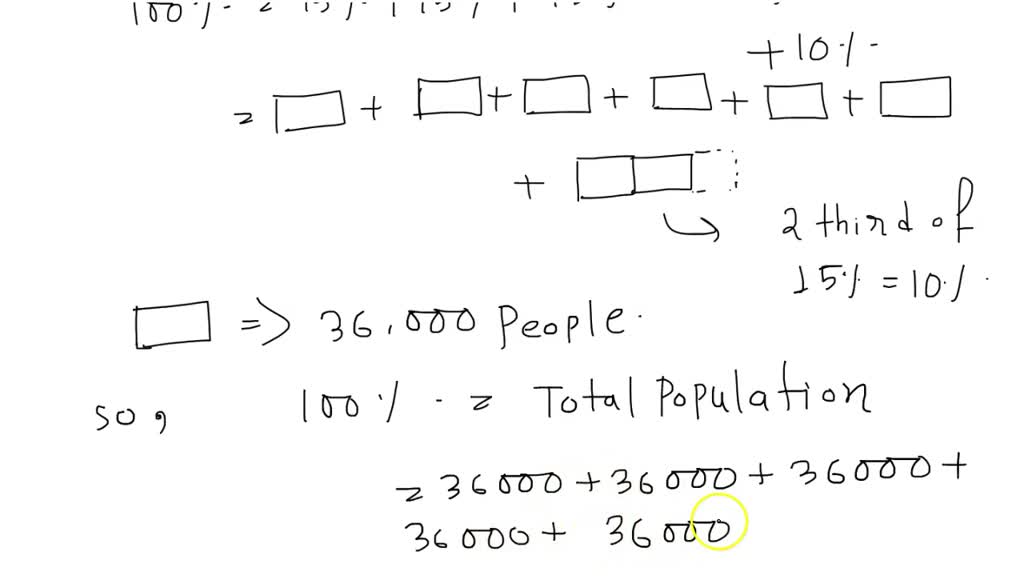 100% = 15% + 15% +
+ 10%
= + + + + +
+
2 third of
15% = 10%.
=> 36,000 People.
so, 100% = Total Population
= 36000 + 36000 + 36000 +
36000 + 36000